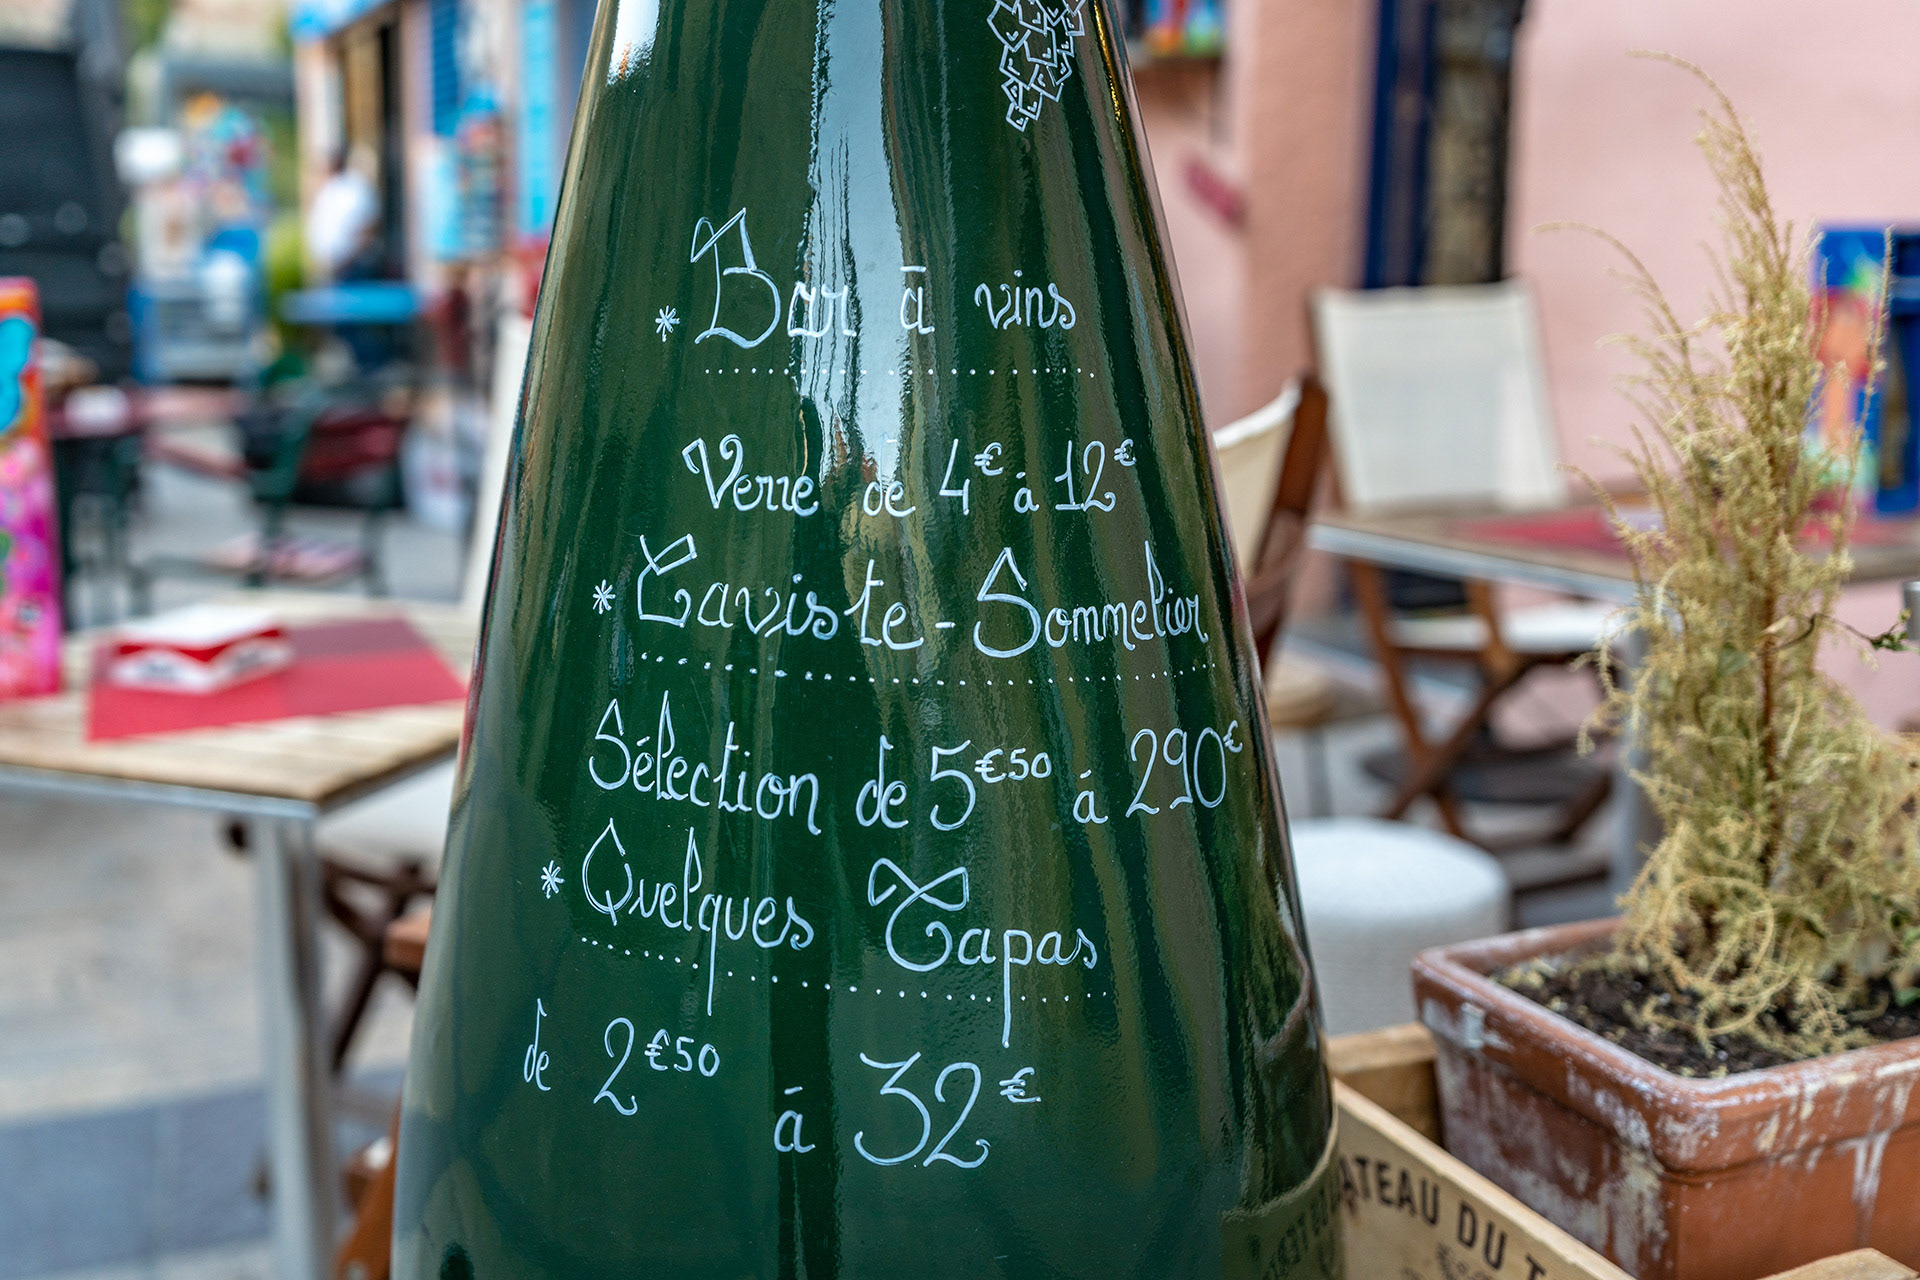 * Bar à vins
Verre de 4€ à 12€
* Caviste-Sommelier
Sélection de 5€50 à 290€
* Quelques Tapas
de 2€50 à 32€
ATEAU DU T